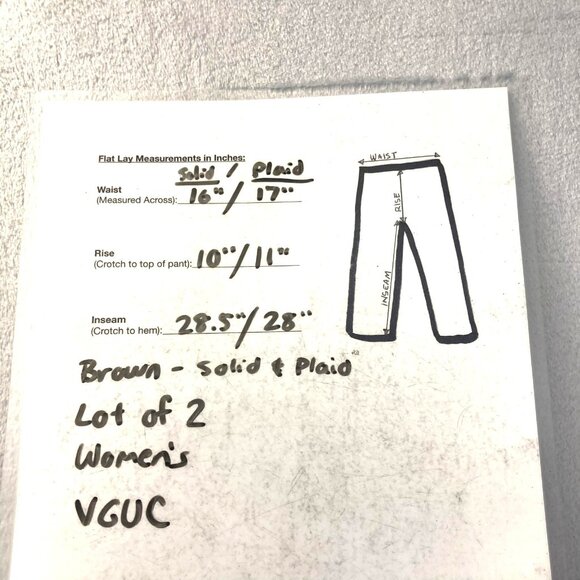 Flat Lay Measurements in Inches:
Solid / Plaid
Waist
(Measured Across): 16" / 17"
Rise
(Crotch to top of pant): 10" / 11"
Inseam
(Crotch to hem): 28.5" / 28"
Brown - Solid & Plaid
Lot of 2
Women's
VGUC
WAIST
RISE
INSEAM